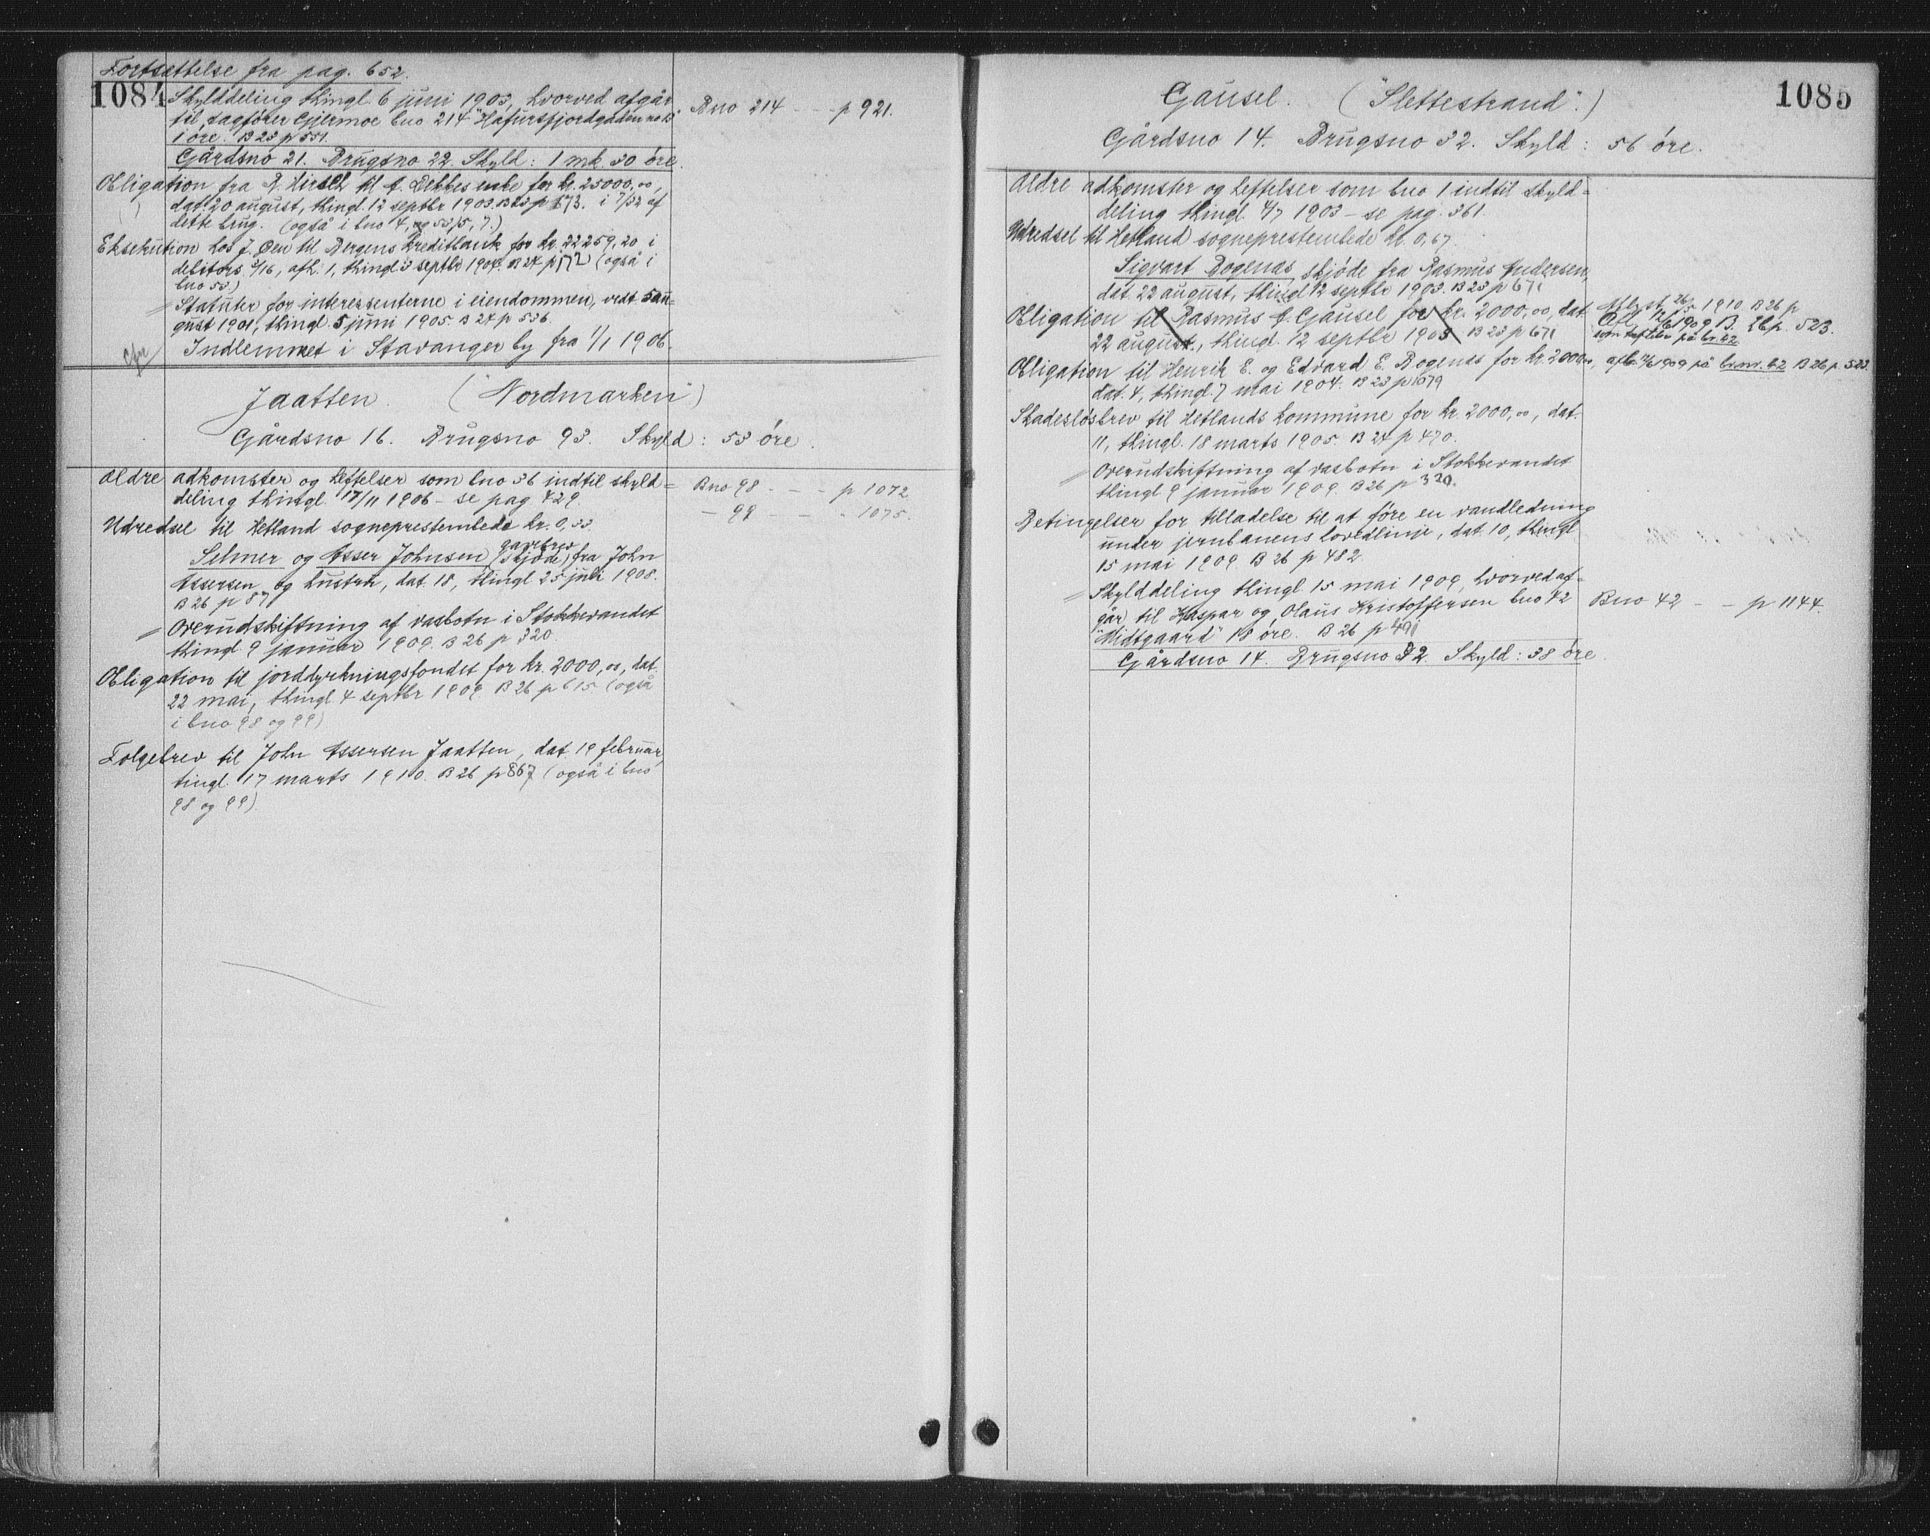 Fortsættelse fra pag. 652.
1084
Skylddeling thingl. 6 juni 1903, hvorved afgår
til sagfører Gjermoe bno 214 "Hafursfjordgaden no 25"
1 øre. B 23 p 551.
Bno 214 - - p 921.
Gårdsno 21. Brugsno 22. Skyld: 1 mk. 30 øre.
Obligation fra R. Hirsch til A. Debbes enke for kr. 25000,00,
dat. 20 august, thingl. 12 septbr 1903. B 23 p 673. i 7/32 af
dette brug. (også i bno 4, og 53, 5, 7.)
Eksekution hos J. Øen til Bergens Kreditbank for kr. 22259,20 i
debitors 3/16, afh. 1, thingl 3 septbr 1904. B 24 p 172 (også i
bno 53)
Statuter for interessenterne i eiendommen, vedt. 5 au-
gust 1901, thingl. 5 juni 1905. B 24 p 536.
Indlemmet i Stavanger by fra 1/1 1906.
Jaatten. ("Nordmarken")
Gårdsno 16. Brugsno 93. Skyld: 53 øre.
Ældre adkomster og heftelser som bno 36 indtil skyld-
deling thingl. 17/11 1906 - se pag 429
Bno 98 - - - p 1072
- 99 - - - - 1075.
Udredsel til Hetland sogneprestembede kr. 0,53.
gavebrev
Selmer og Asser Johnsen (skjøde) fra John
Assersen og hustru, dat. 18, thingl 25 juli 1908.
B 26 p 87
Overudskiftning af vasbotn i Stokkevandet
thingl. 9 januar 1909. B 26 p 320.
Obligation til jorddyrkningsfondet for kr. 2000,00, dat.
22 mai, thingl 4 septbr 1909 B 26 p 615 (også
i bno 98 og 99)
Følgebrev til John Assersen Jaatten, dat. 19 februar,
tingl. 17 marts 1910. B 26 p 867 (også i bno
98 og 99)
1085
Gausel. ("Slettestrand".)
Gårdsno 14. Brugsno 32. Skyld: 56 øre.
Ældre adkomster og heftelser som bno 1 indtil skyld-
deling thingl. 4/7 1903 - se pag. 361.
Udredsel til Hetland sogneprestembede kr. 0,67.
Sigvart Bogenæs, skjøde fra Rasmus Andersen,
dat. 22 august, thingl 12 septbr 1903. B 23 p 671
Obligation til Rasmus A. Gausel for kr. 2000,00, dat.
22 august, thingl. 12 septbr 1903 B 23 p 671
Aflyst 26/5 1910 B 26 p
Afl. 12/6 1909 B. 26 p. 523.
som heftelse på br. 42
Obligation til Henrik E. og Edvard E. Bogenæs for kr. 2000,00,
dat. 4, thingl. 7 mai 1904. B 23 p 1079
afl. 12/6 1909 på br.nr. 42 B 26 p. 523.
Skadesløsbrev til Hetlands kommune for kr. 2000,00, dat.
11, thingl. 18 marts 1905. B 24 p 470.
Overudskiftning af vasbotn i Stokkevandet
thingl 9 januar 1909. B 26 p 320.
Betingelser for tilladelse til at føre en vandledning
under jernbanens hovedlinje, dat. 10, thingl
15 mai 1909 B 26 p 482
Skylddeling thingl 15 mai 1909, hvorved af-
går til Kaspar og Olaus Kristoffersen bno 42
"Midtgaard" 18 øre. B 26 p 491
Bno 42 - - p 1144.
Gårdsno 14. Brugsno 32. Skyld: 38 øre.